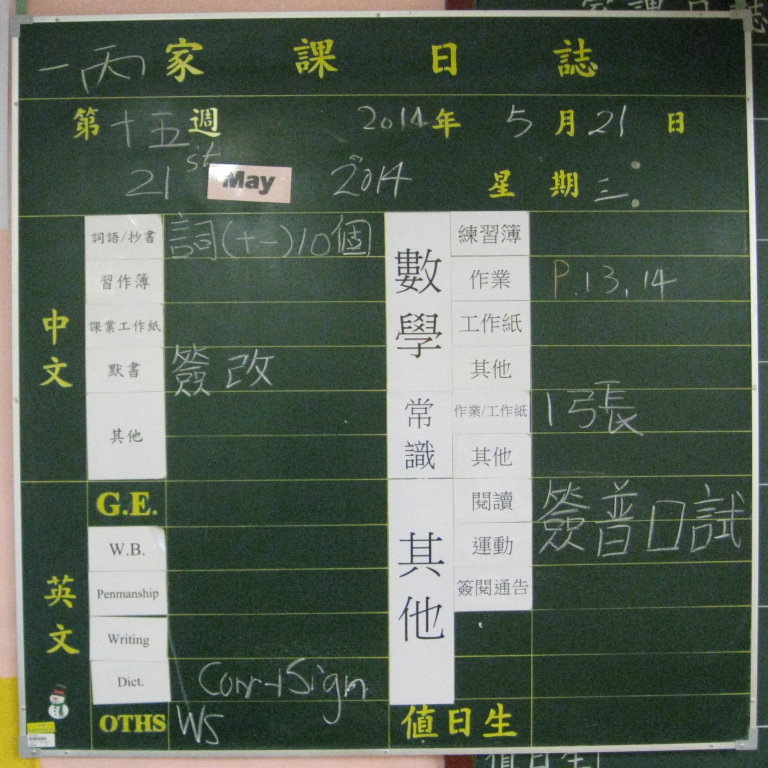 一丙家課日誌
第十五週 2014年5月21日
21st May 2014 星期三
中文
詞語/抄書 詞(十一)10個
習作簿
課業工作紙
默書 簽改
其他
英文
G.E.
W.B.
Penmanship
Writing
Dict. Corr+Sign
OTHS WS
數學
練習簿
作業 P.13,14
工作紙
其他
常識
作業/工作紙 1張
其他
其他
閱讀 簽普口試
運動
簽閱通告
值日生